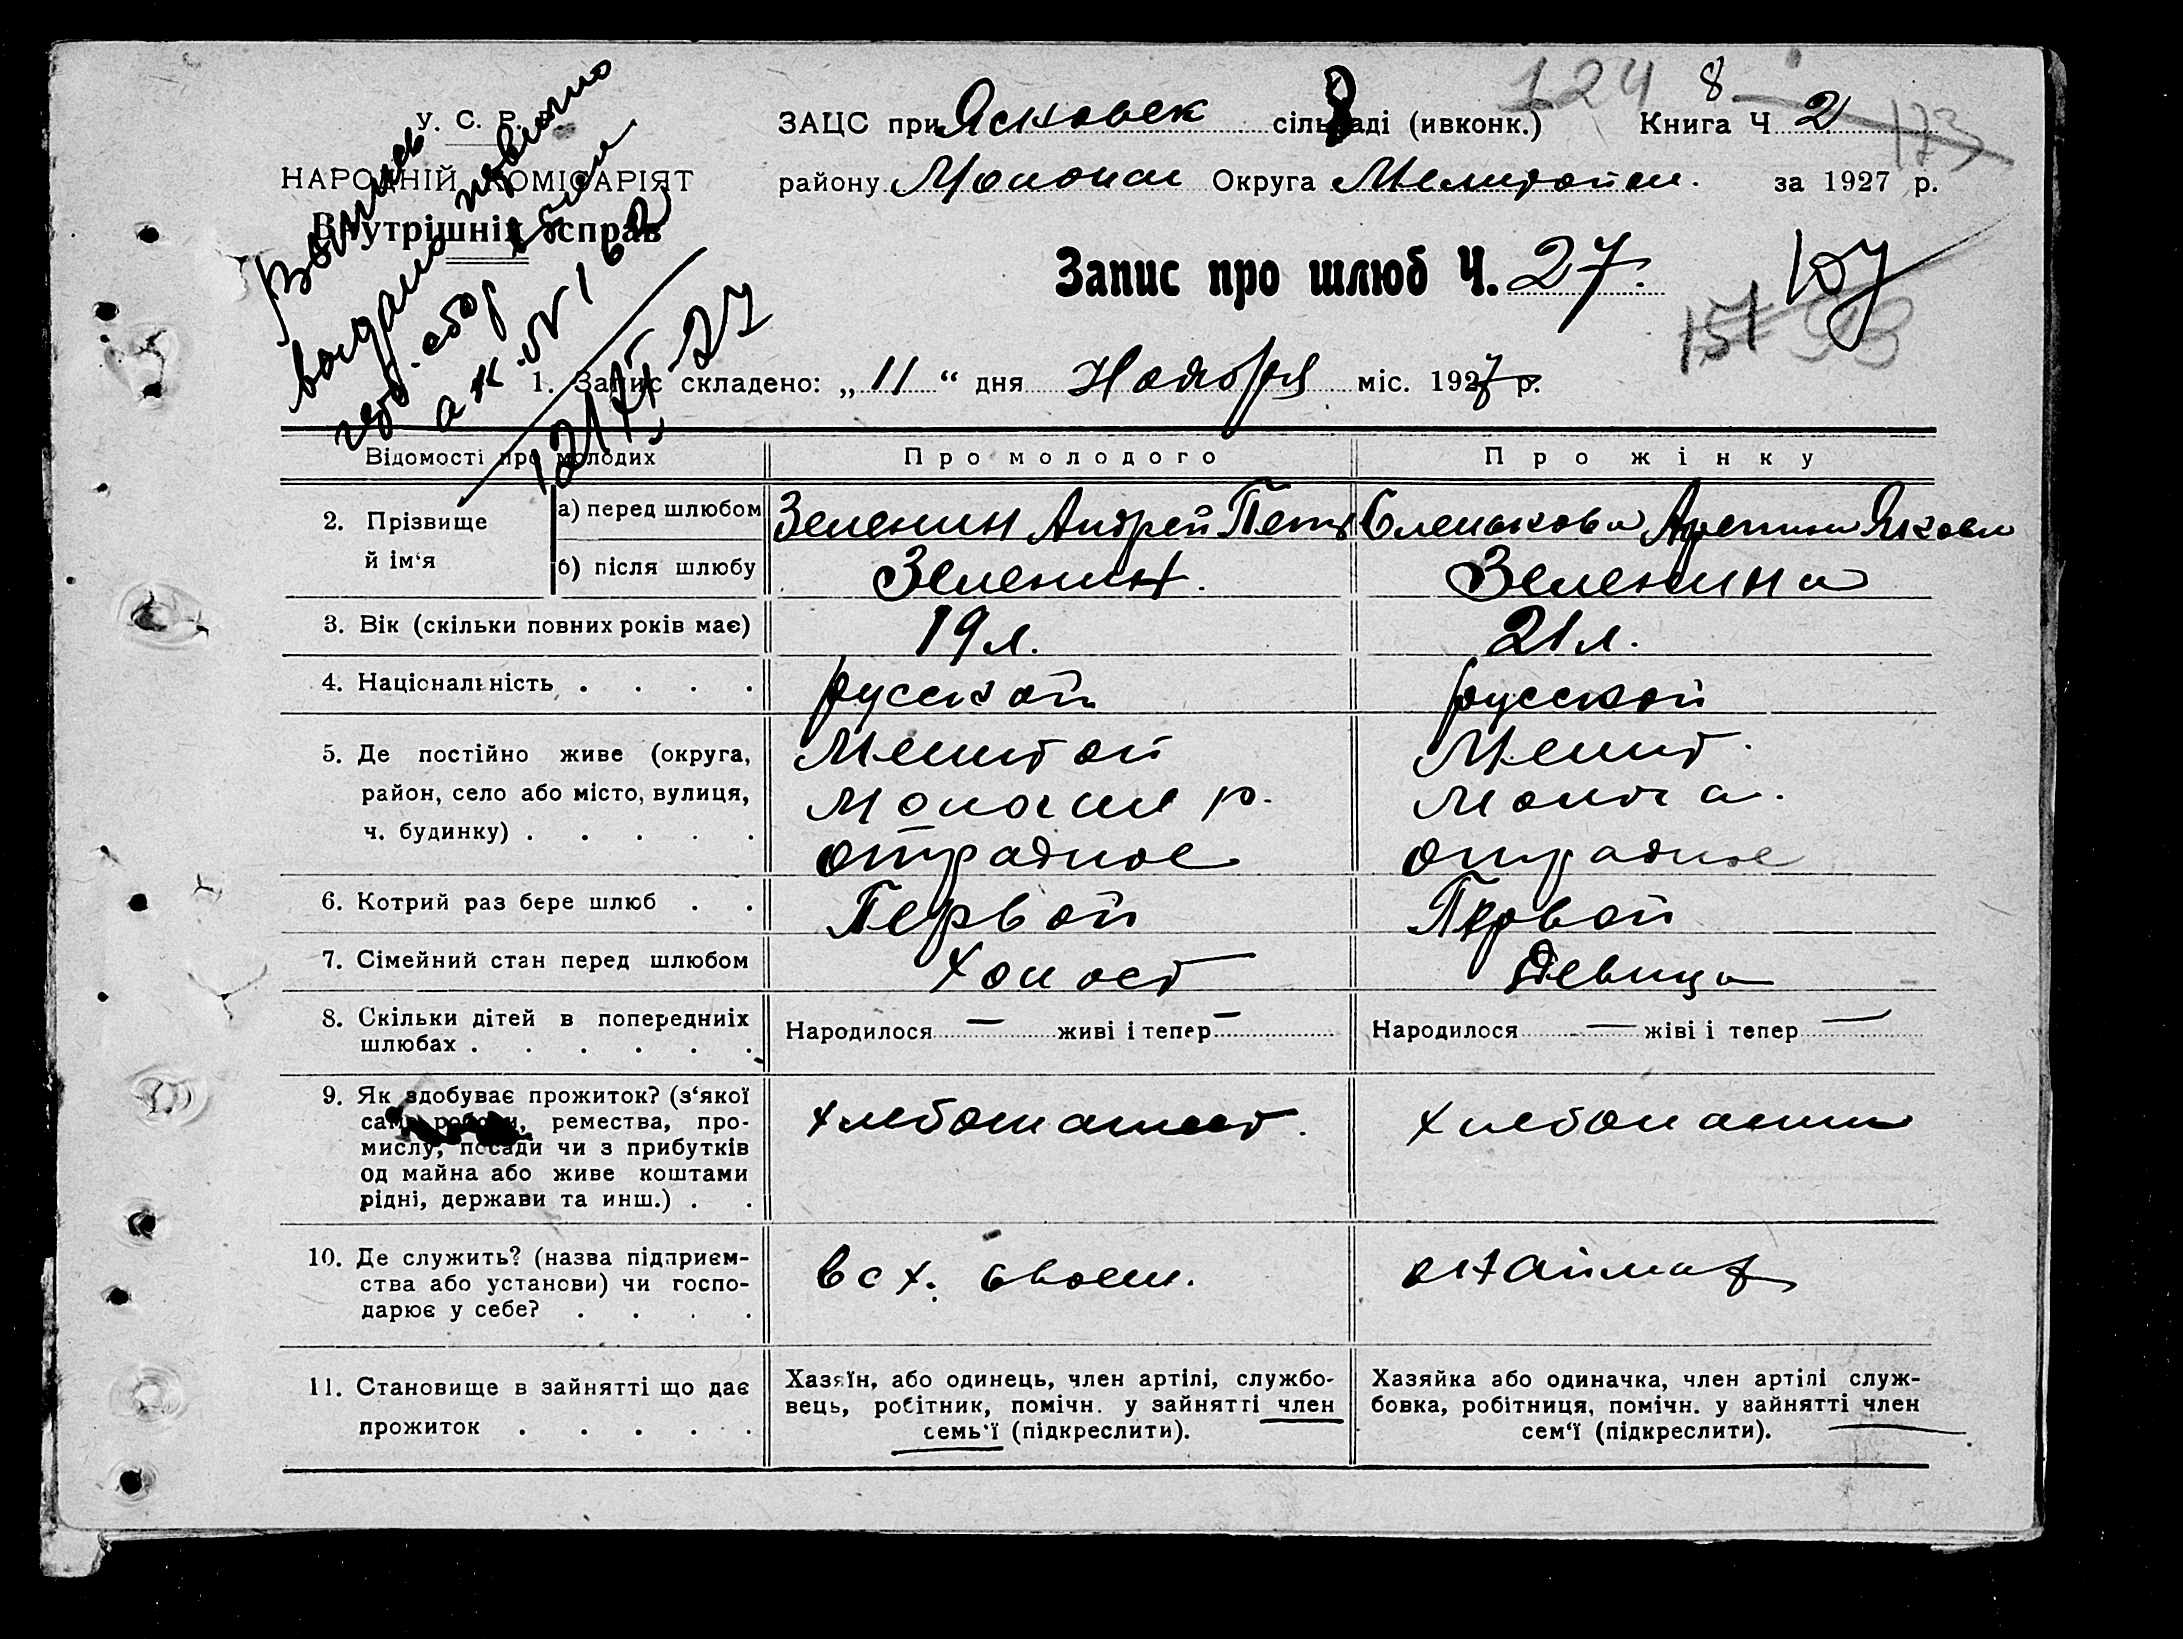 У. С. Р.
НАРОДНІЙ КОМІСАРІЯТ
Внутрішніх справ
Выпись
выдано
гербов. сбор
124 8
ЗАЦС при сільраді (ивконк.) Книга Ч 2
173
району Округа Мелитопол. за 1927 р.
Запис про шлюб Ч. 27.
107
151
1. Запис складено: „ 11 “ дня Ноября міс. 1927 р.
Відомості про молодих Про молодого Про жінку
2. Прізвище й ім‘я
а) перед шлюбом Зеленин Андрей Петр Яковл
б) після шлюбу Зеленин. Зеленина
3. Вік (скільки повних років має) 19 л. 21 л.
4. Національність . . . . русской русской
5. Де постійно живе (округа, Мелитоп Мелит.
район, село або місто, вулиця, р.
ч. будинку) . . . . . отрадное отрадное
6. Котрий раз бере шлюб . . Первой Первой
7. Сімейний стан перед шлюбом Холост Девица
8. Скільки дітей в попередниіх шлюбах . . . . . . Народилося — живі і тепер — Народилося — жіві і тепер —
9. Як здобуває прожиток? (з‘якої
саме роботи, ремества, про-
мислу, посади чи з прибутків
од майна або живе коштами
рідні, держави та инш.) . .
хлебопашест. хлебопаш
10. Де служить? (назва підприєм-
ства або установи) чи госпо-
дарює у себе? . . . .
в с х. своем.
11. Становище в зайнятті що дає
прожиток . . . . .
Хазяїн, або одинець, член артілі, службо-
вець, робітник, помічн. у зайнятті член
семь‘ї (підкреслити).
Хазяйка або одиначка, член артілі служ-
бовка, робітниця, помічн. у зайнятті член
сем‘ї (підкреслити).